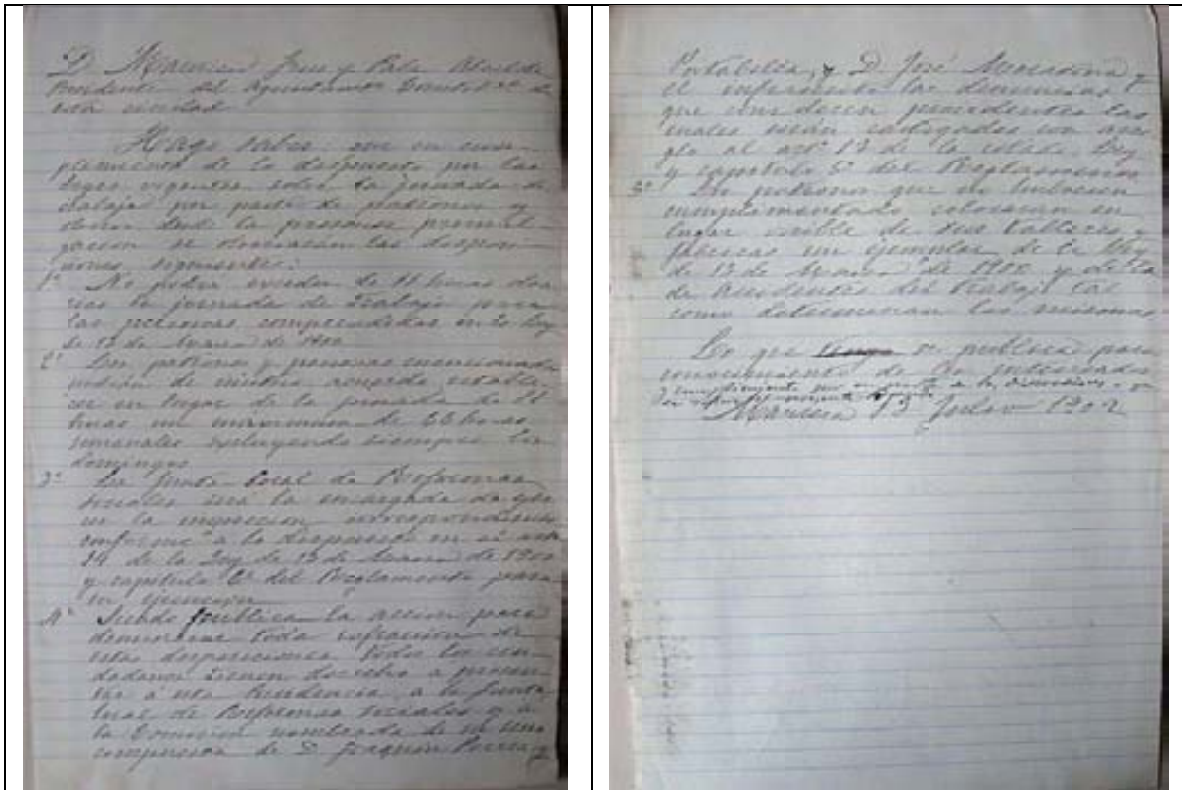 D. Mauricio Fius y Pala Alcalde
Presidente del Ayuntamiento Constl. de
esta ciudad
Hago saber: que en cum-
plimiento de lo dispuesto por las
leyes vigentes sobre la jornada de
trabajo por parte de patronos y
obreros desde la presente promul-
gación se observarán las disposi-
ciones siguientes:
1ª No podrá exceder de 11 horas dia-
rias la jornada de trabajo para
las personas comprendidas en la Ley
de 13 de Marzo de 1900
2ª Los patronos y personas mencionadas
podrán de mútuo acuerdo estable-
cer en lugar de la jornada de 11
horas un maximum de 66 horas
semanales excluyendo siempre los
domingos
3ª La Junta local de Reformas
sociales será la encargada de que
en la inspección correspondiente
conforme a lo dispuesto en el artº
14 de la Ley de 13 de Marzo de 1900
y capítulo 6º del Reglamento para
su ejecución
4ª Siendo pública la acción para
denunciar toda infracción de
estas disposiciones todos los ciu-
dadanos tienen derecho a presen-
tar á esta Presidencia, a la Junta
local de Reformas sociales y a
la Comisión nombrada de su seno
compuesta de D. Joaquín
Portabella, y D. José y
el infrascrito las denuncias
que consideren procedentes las
cuales serán castigadas con arre-
glo al artº 13 de la citada Ley
y capítulo 5º del Reglamento
5ª Los patronos que no hubiesen
cumplimentado colocarán en
lugar visible de sus talleres y
fábricas un ejemplar de la Ley
de 13 de Marzo de 1900 y de la
de Accidentes del trabajo tal
como determinan las mismas
Lo que se publica para
conocimiento de los interesados
y cumplimiento por
Manresa 13 Julio 1902